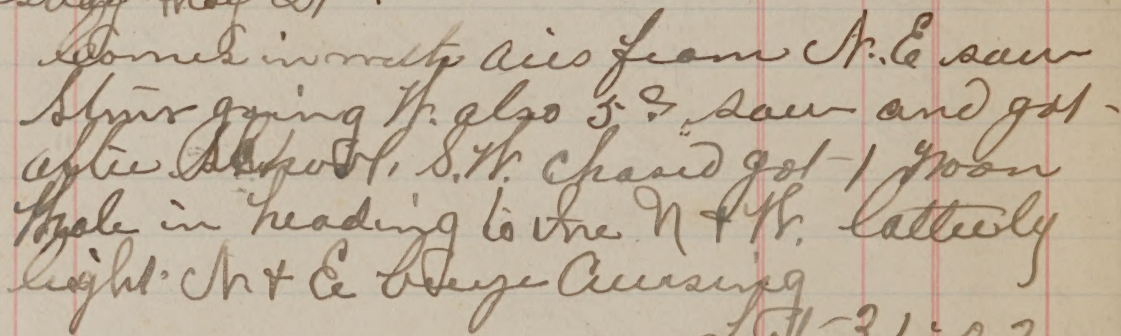 Comes in with airs from N.E saw
Stmr going W. also 5 ?, saw and got
after S.W. chased got 1 noon
Whale in heading to the N & W. latterly
light N & E breeze Cruising